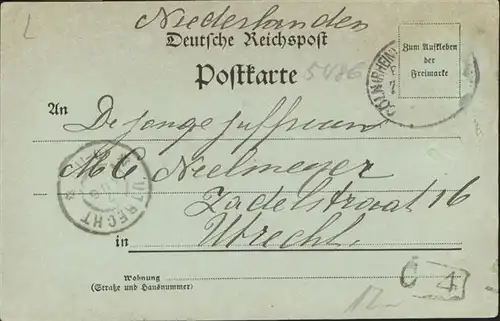 Niederlanden
Deutsche Reichspost
Postkarte
5486
Zum Aufkleben
der
Freimarke
CÖLN (RHEIN)
An
De jonge juffrouw
M C Neelmeyer
Zadelstraat 16
in Utrecht.
UTRECHT
Wohnung
(Straße und Hausnummer)
C 4
12